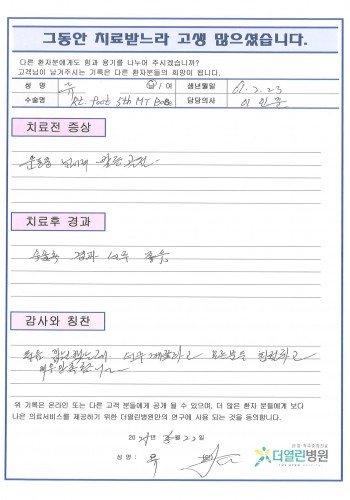 그동안 치료받느라 고생 많으셨습니다.
다른 환자분에게도 힘과 용기를 나누어 주시겠습니까?
고객님이 남겨주시는 기록은 다른 환자분들의 희망이 됩니다.
성 명 유 남 / 여 생년월일
수술명 Rt. foot 5th MT 담당의사
치료전 증상
운동중 넘어져 발등 골절
치료후 경과
수술후 경과 너무 좋음
감사와 칭찬
너무 친절하고
매우 만족합니다
위 기록은 온라인 또는 다른 고객 분들에게 공개 될 수 있으며, 더 많은 환자 분들에게 보다
나은 의료서비스를 제공하기 위한 더열린병원만의 연구에 사용 되는 것을 동의합니다.
20 년 월 일
성 명 : 유
더열린병원